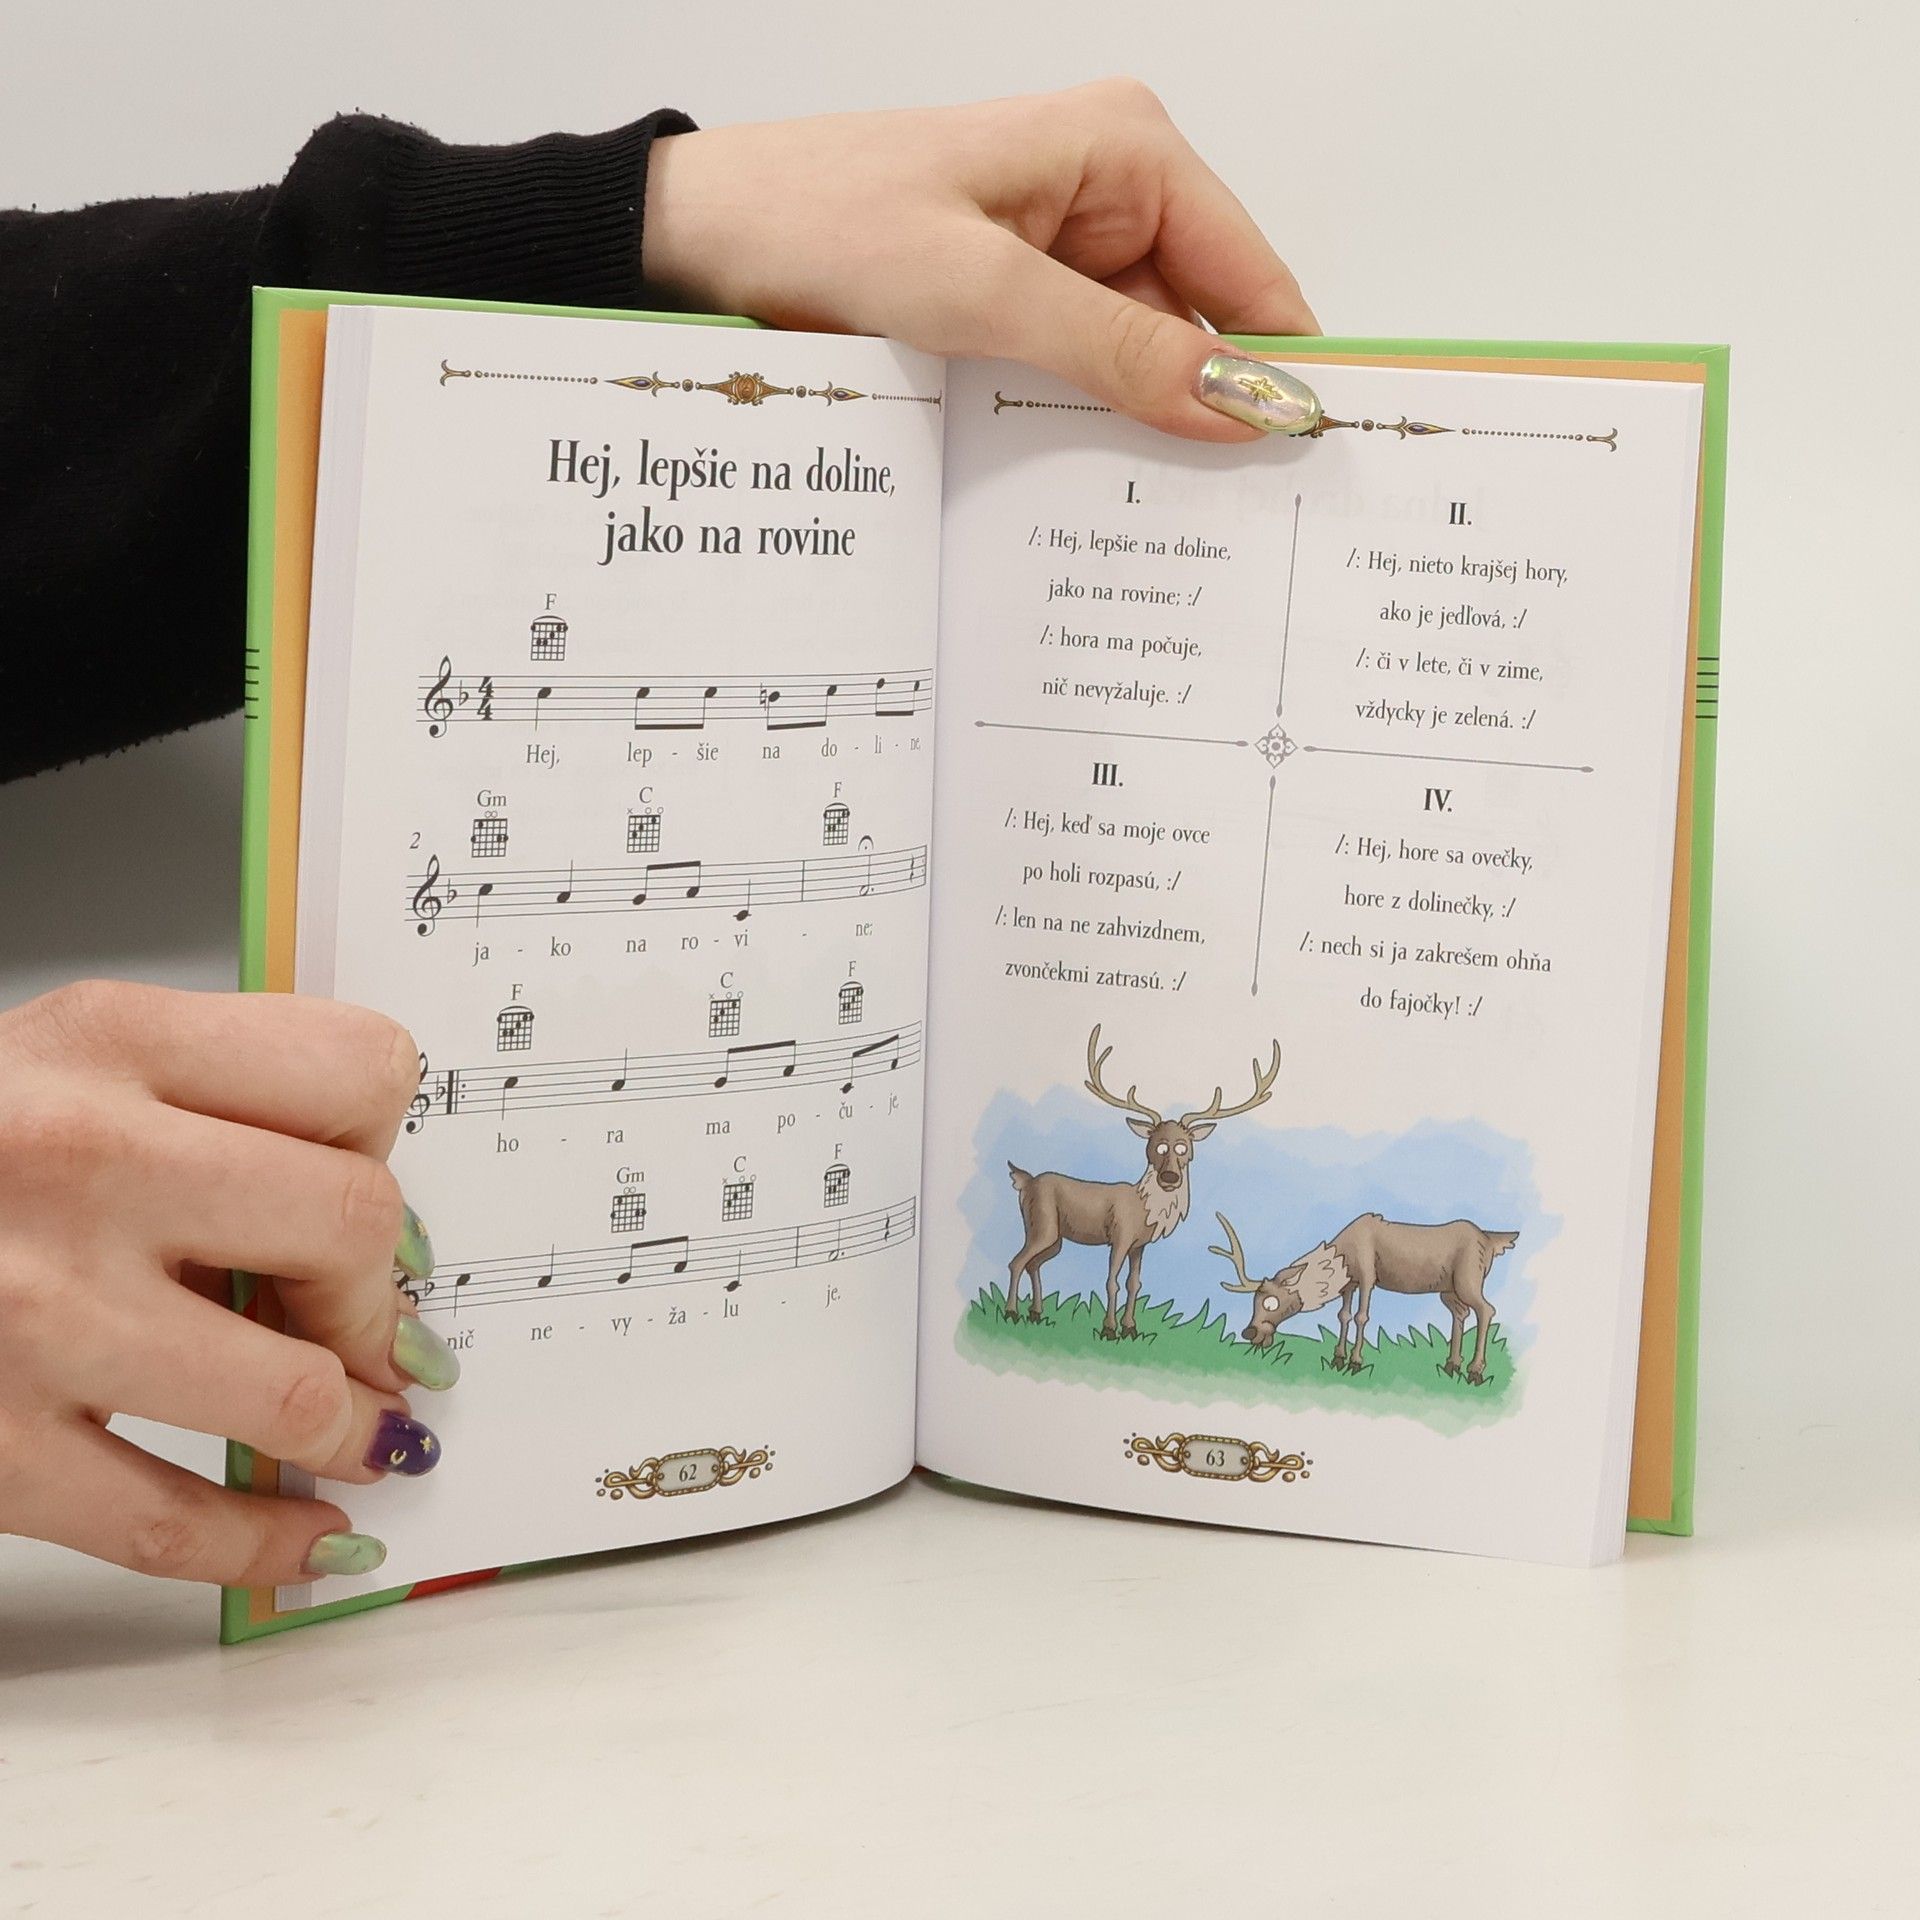 Hej, lepšie na doline,
jako na rovine
F
Hej, lep - šie na do - li - ne,
Gm C F
2
ja - ko na ro - vi - ne;
F C F
ho - ra ma po - ču - je
Gm C F
nič ne - vy - ža - lu - je.
62
I.
/: Hej, lepšie na doline,
jako na rovine; :/
/: hora ma počuje,
nič nevyžaluje. :/
II.
/: Hej, nieto krajšej hory,
ako je jedľová, :/
/: či v lete, či v zime,
vždycky je zelená. :/
III.
/: Hej, keď sa moje ovce
po holi rozpasú, :/
/: len na ne zahvizdnem,
zvončekmi zatrasú. :/
IV.
/: Hej, hore sa ovečky,
hore z dolinečky, :/
/: nech si ja zakrešem ohňa
do fajočky! :/
63